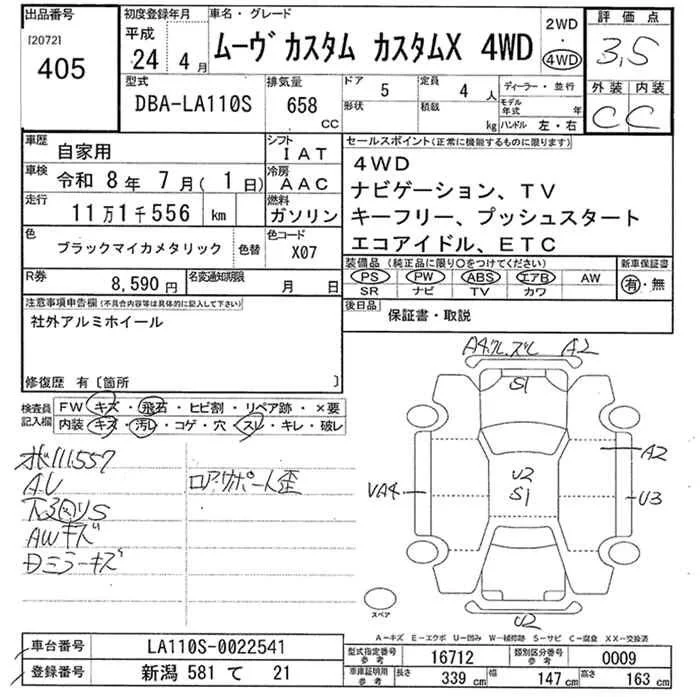 出品番号
[2072]
405
初度登録年月
平成
24年 4月
車名・グレード
ムーヴ カスタム カスタムX 4WD
2WD
・
4WD
評価点
3.5
型式
DBA-LA110S
排気量
658
CC
ドア
5
定員
4 人
形状
積載
kg
ディーラー・並行
モデル年式 年
ハンドル 左・右
外装 内装
C C
車歴
自家用
シフト
IAT
車検
令和 8年 7月( 1日)
冷房
AAC
走行
11万1千556 km
燃料
ガソリン
色
ブラックマイカメタリック
色替
色コード
X07
R券
8,590円
名変通知期限
月 日
セールスポイント(正常に機能するものに限ります)
4WD
ナビゲーション、TV
キーフリー、プッシュスタート
エコアイドル、ETC
装備品 (純正品に限り○をつけてください)
PS PW ABS エアB AW
SR ナビ TV カワ
新車保証書
有・無
後日品
保証書・取説
注意事項申告欄(不具合内容等は具体的に記入して下さい)
社外アルミホイール
修復歴 有〔箇所 〕
検査員
記入欄
FW キズ・飛石・ヒビ割・リペア跡・×要
内装 キズ・汚レ・コゲ・穴・スレ・キレ・破レ
111557
ロアサポート歪
AWキズ
Dミラーキズ
A2
S1
A2
U2
S1
VA4
U3
U2
スペア
A−キズ E−エクボ U−凹み W−補修跡 S−サビ C−腐食 XX−交換済
車台番号
LA110S-0022541
登録番号
新潟 581 て 21
型式指定番号
参考
16712
類別区分番号
参考
0009
車庫証明用
参考
長さ 339 cm
幅 147 cm
高さ 163 cm